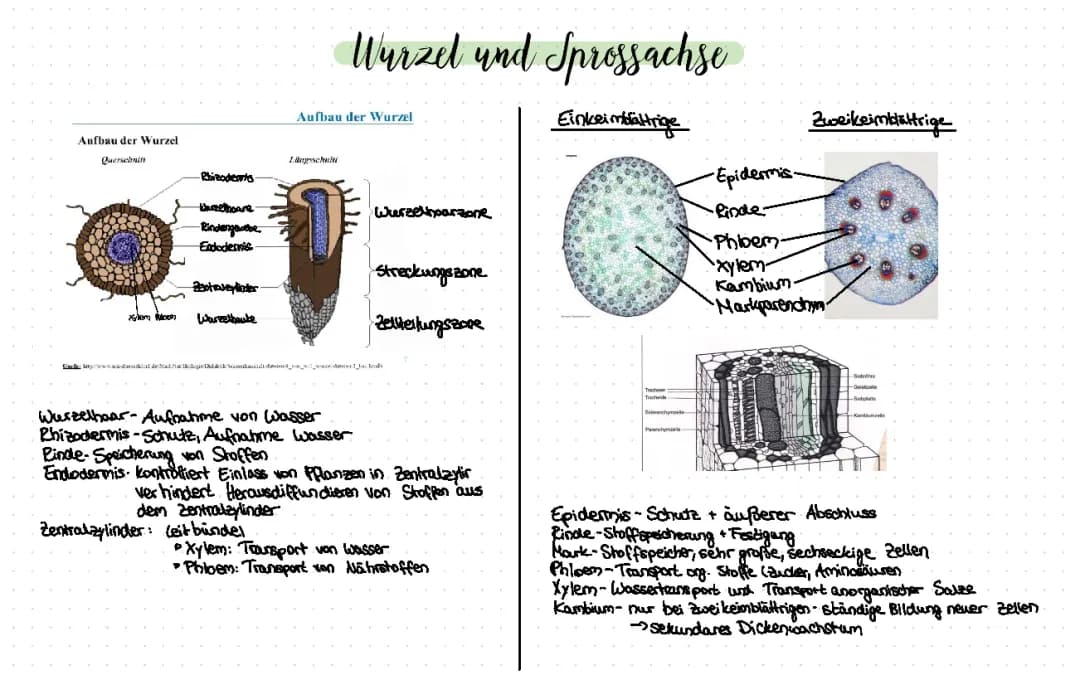 Wurzel und Sprossachse
Aufbau der Wurzel
Aufbau der Wurzel
Querschnitt
Längsschnitt
Rhizodermis
Wurzelhaare
Rindengewebe
Endodermis
Zentralzylinder
Xylem Phloem
Wurzelhaube
Wurzelhaarzone
Streckungszone
Zellteilungszone
Quelle:
Wurzelhaar - Aufnahme von Wasser
Rhizodermis - Schutz, Aufnahme Wasser
Rinde - Speicherung von Stoffen
Endodermis - kontrolliert Einlass von Pflanzen in Zentralzylir
verhindert Herausdiffundieren von Stoffen aus
dem Zentralzylinder
Zentralzylinder: Leitbündel
• Xylem: Transport von Wasser
• Phloem: Transport von Nährstoffen
Einkeimblättrige
Zweikeimblättrige
Epidermis
Rinde
Phloem
Xylem
Kambium
Markparenchym
Tracheen
Tracheide
Sklerenchymzelle
Parenchymzelle
Siebröhre
Geleitzelle
Siebplatte
Kambiumzelle
Epidermis - Schutz + äußerer Abschluss
Rinde - Stoffspeicherung + Festigung
Mark - Stoffspeicher, sehr große, sechseckige Zellen
Phloem - Transport org. Stoffe (Zucker, Aminosäuren
Xylem - Wassertransport und Transport anorganischer Salze
Kambium - nur bei zweikeimblättrigen - ständige Bildung neuer Zellen
→ sekundäres Dickenwachstum